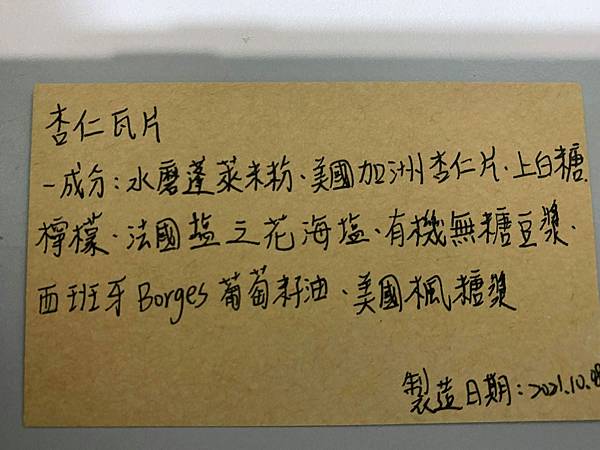 杏仁瓦片
-成分:水磨蓬萊米粉、美國加洲杏仁片、上白糖、
檸檬、法國塩之花海塩、有機無糖豆漿、
西班牙Borges葡萄籽油、美國楓糖漿
製造日期:2021.10.08